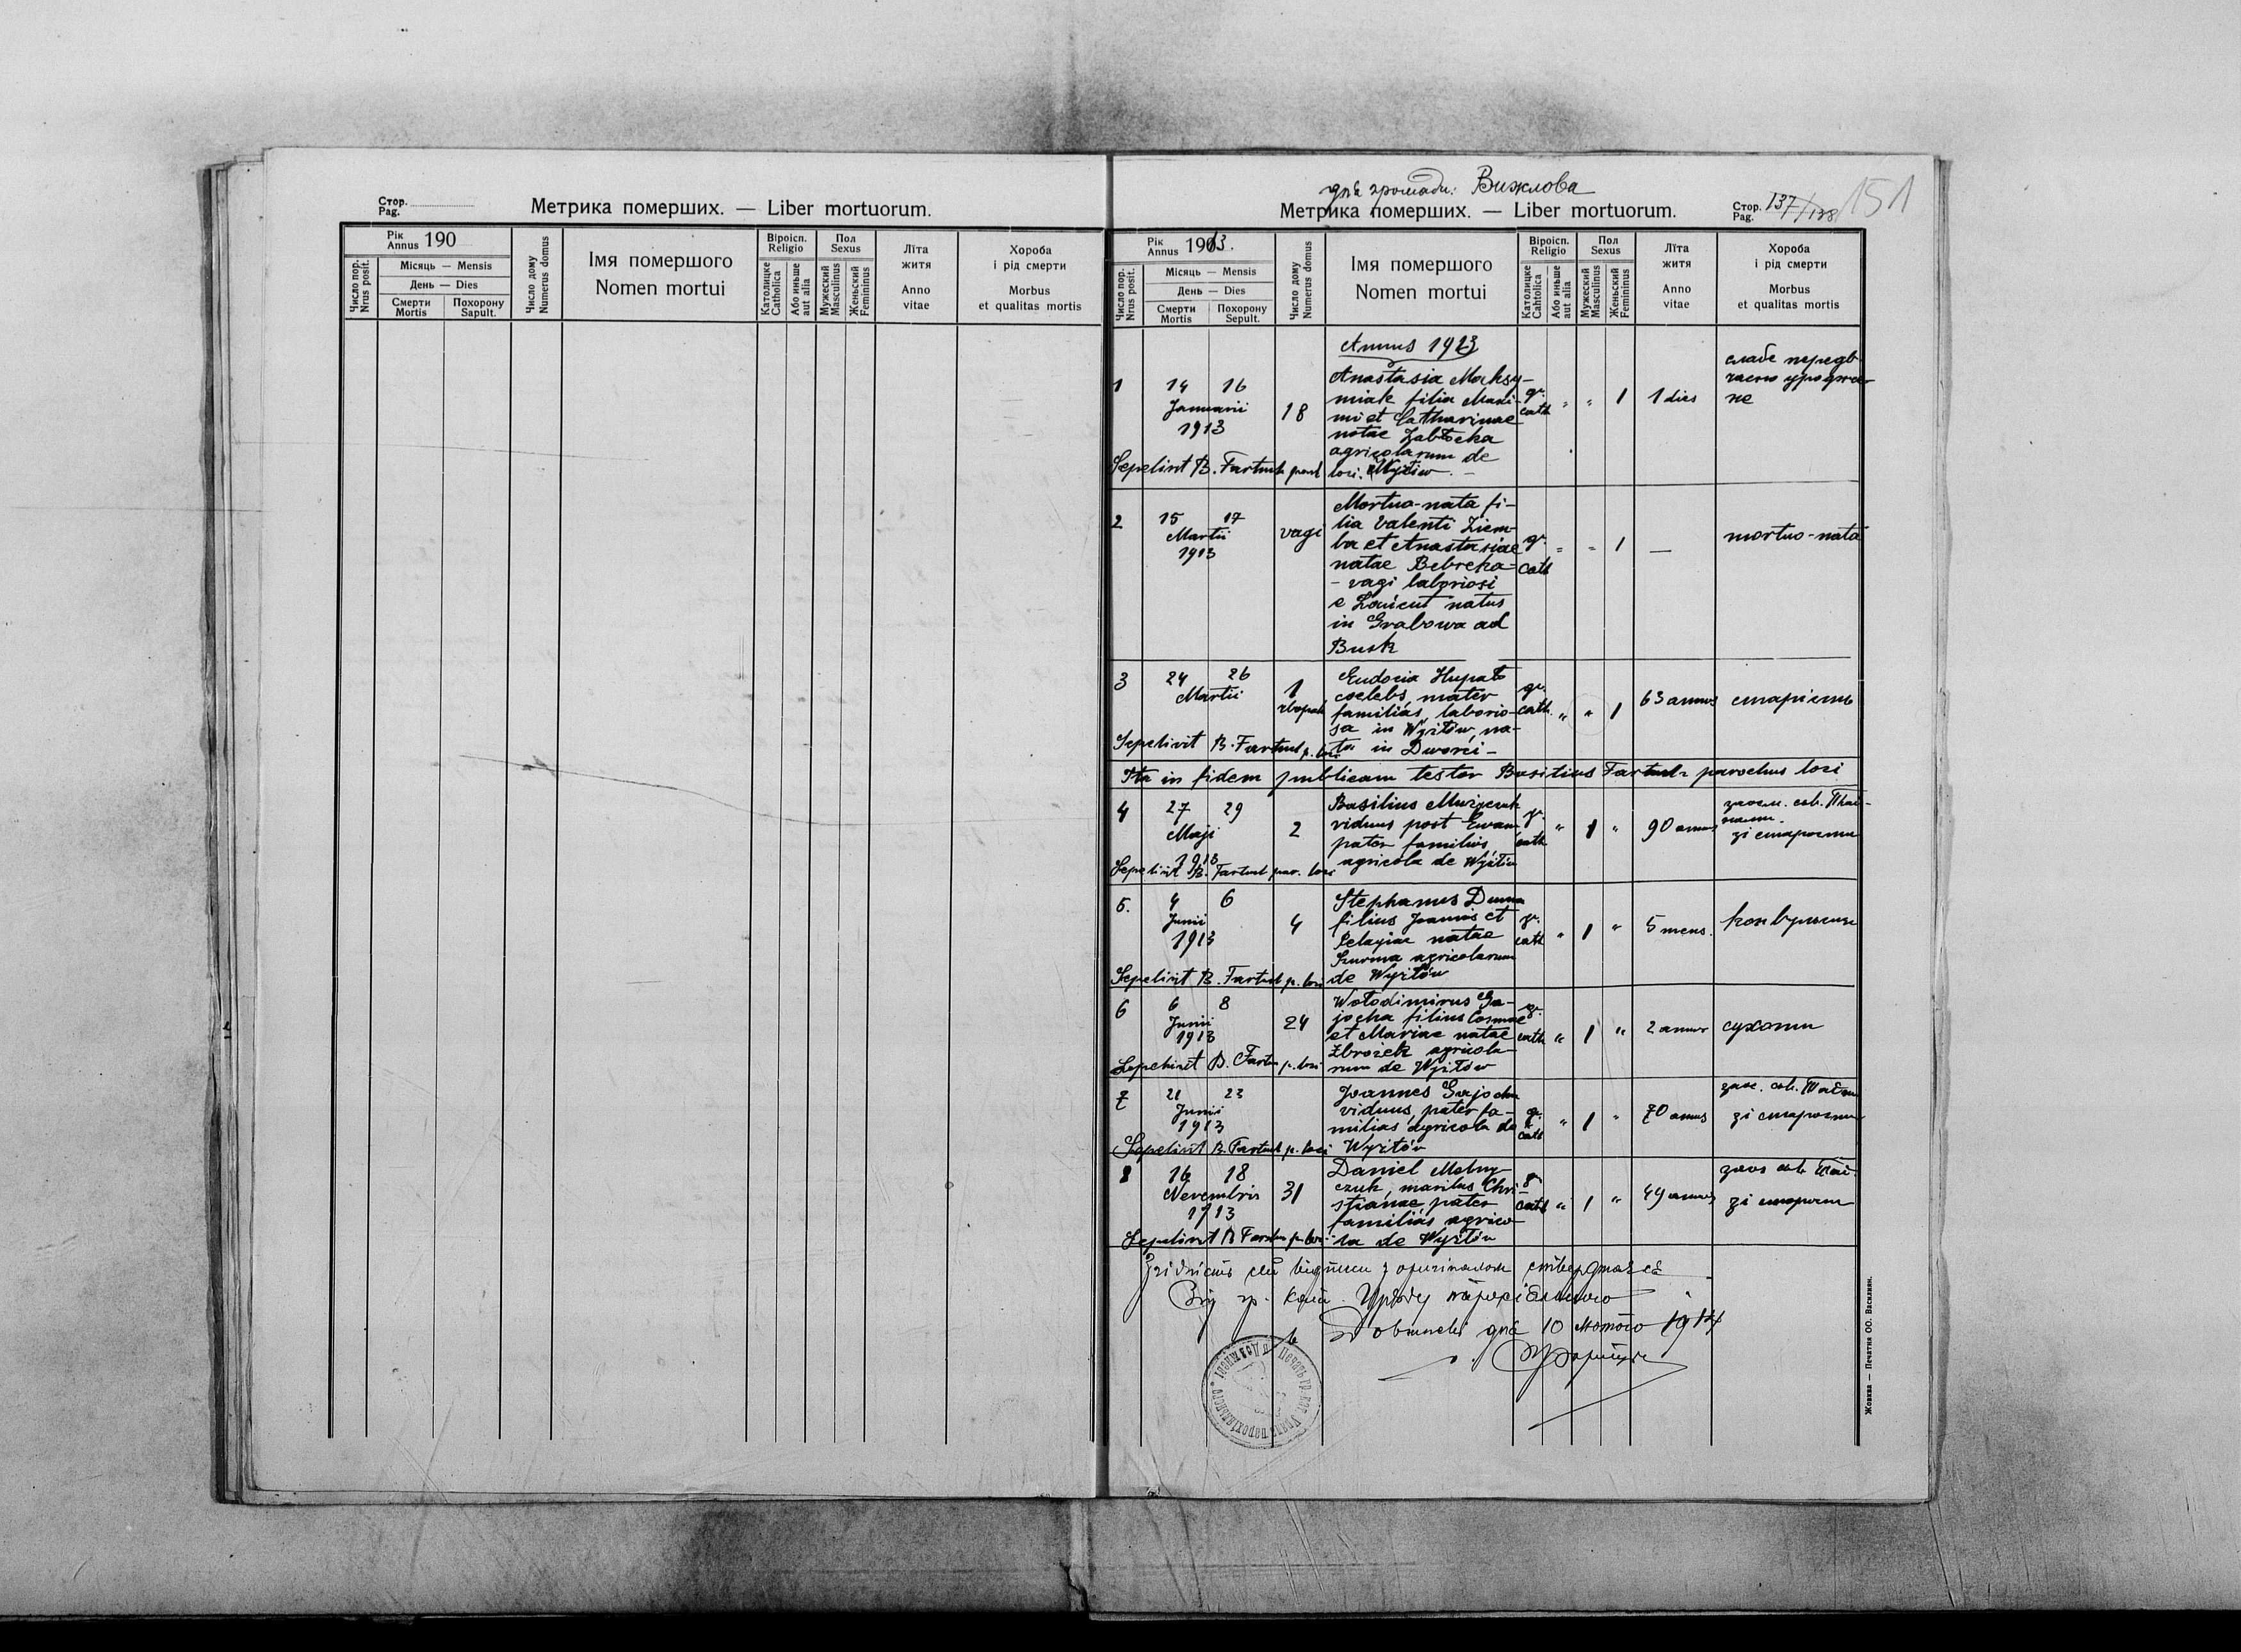 Стор.
Pag.
Метрика померших. — Liber mortuorum.
Рік
Annus 190
Число пор.
Nrus posit.
Місяць — Mensis
День — Dies
Смерти
Mortis
Похорону
Sapult.
Число дому
Numerus domus
Імя помершого
Nomen mortui
Віроісп.
Religio
Католицке
Catholica
Або иньше
aut alia
Пол
Sexus
Мужеский
Masculinus
Женьский
Femininus
Лїта
житя
Anno
vitae
Хороба
і рід смерти
Morbus
et qualitas mortis
для громади: Вижлова
Метрика померших. — Liber mortuorum.
Стор.
Pag. 137/138
151
Рік
Annus 1913.
Число пор.
Nrus posit.
Місяць — Mensis
День — Dies
Смерти
Mortis
Похорону
Sepult.
Число дому
Numerus domus
Імя помершого
Nomen mortui
Віроісп.
Religio
Католицке
Cahtolica
Або иньше
aut alia
Пол
Sexus
Мужеский
Masculinus
Женьский
Femininus
Лїта
житя
Anno
vitae
Хороба
і рід смерти
Morbus
et qualitas mortis
Annus 1913
1 14 16
Januarii
1913
18
Anastasia Maksy-
miak filia Maxi-
mi et Catharinae
natae Zabłocka
agricolarum de
loci. Wyżłów.
gr.
cath
" " 1 1 dies
слабе передв-
часно уродже-
не
Sepelivit B. Fartuch
2 15 17
Martii
1913
vagi
Mortuo-nata fi-
lia Valenti Ziem-
ba et Anastasiae
natae Bebreka-
- vagi laboriosi
e Łańcut natus
in Grabowa ad
Busk
gr.
cath
" " 1 —
mortuo-nata
3 24 26
Martii
1
Eudocia Hupało
coelebs, mater
familias, laborio-
sa in Wyżłów, na-
ta in Dworci -
gr.
cath.
" " 1 63 annus старість
Sepelivit B. Fartuch p. loci
Ita in fidem publicam testor Basilius Fartuch parochus loci
4 27 29
Maji
1913
2
Basilius
viduus post Ewam
pater familias,
agricola de Wyżłów
gr.
cath
" 1 " 90 annus
зі старости
Sepelivit B. Fartuch par. loci
5. 4 6
Junii
1913
4
Stephanus Duma
filius Joannis et
Pelagiae natae
Szurma agricolarum
de Wyżłów
gr.
cath
" 1 " 5 mens. конвульсиї
Sepelivit B. Fartuch p. loci
6 6 8
Junii
1913
24
Wołodimirus Ga-
jocha filius Cosmae
et Mariae natae
Zbrożek agricola-
rum de Wyżłów
gr.
cath
" 1 " 2 annus сухоти
Sepelivit B. Fartuch p. loci
7 21 23
Junii
1913
Joannes Gajocha
viduus, pater fa-
milias agricola de
Wyżłów
gr.
cath
" 1 " 70 annus
зі старости
Sepelivit B. Fartuch p. loci
8 16 18
Novembris
1913
31
Daniel
czuk, maritus Chri-
stianae, pater
familias agrico-
la de Wyżłów
gr.
cath
" 1 " 49 annus
Sepelivit B Fartuch p. loci
Згідність сеї відписи з оригіналом стверджаєся
Від гр. кат. Уряду парохіяльного
в дня 10 лютого 1914
Жовква — Печатня ОО. Василиян.